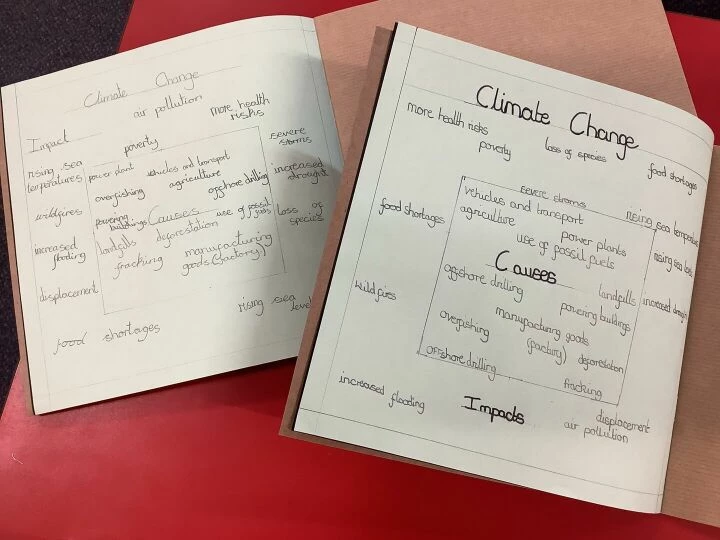 Climate Change
air pollution
more health
risks
Impact
poverty
severe
storms
rising sea
temperatures
power plant
vehicles and transport
increased
drought
overfishing
agriculture
offshore drilling
wildfires
powering
buildings
Causes
use of fossil
fuels
loss of
species
increased
flooding
landfills
deforestation
fracking
manufacturing
goods (factory)
displacement
rising sea
level
food shortages
Climate Change
more health risks
poverty
loss of species
food shortages
severe storms
vehicles and transport
rising sea temperature
food shortages
agriculture
power plants
use of fossil fuels
rising sea
Causes
offshore drilling
landfills
increased drought
wildfires
powering buildings
overfishing
manufacturing goods
(factory)
deforestation
offshore drilling
fracking
increased flooding
Impacts
displacement
air pollution